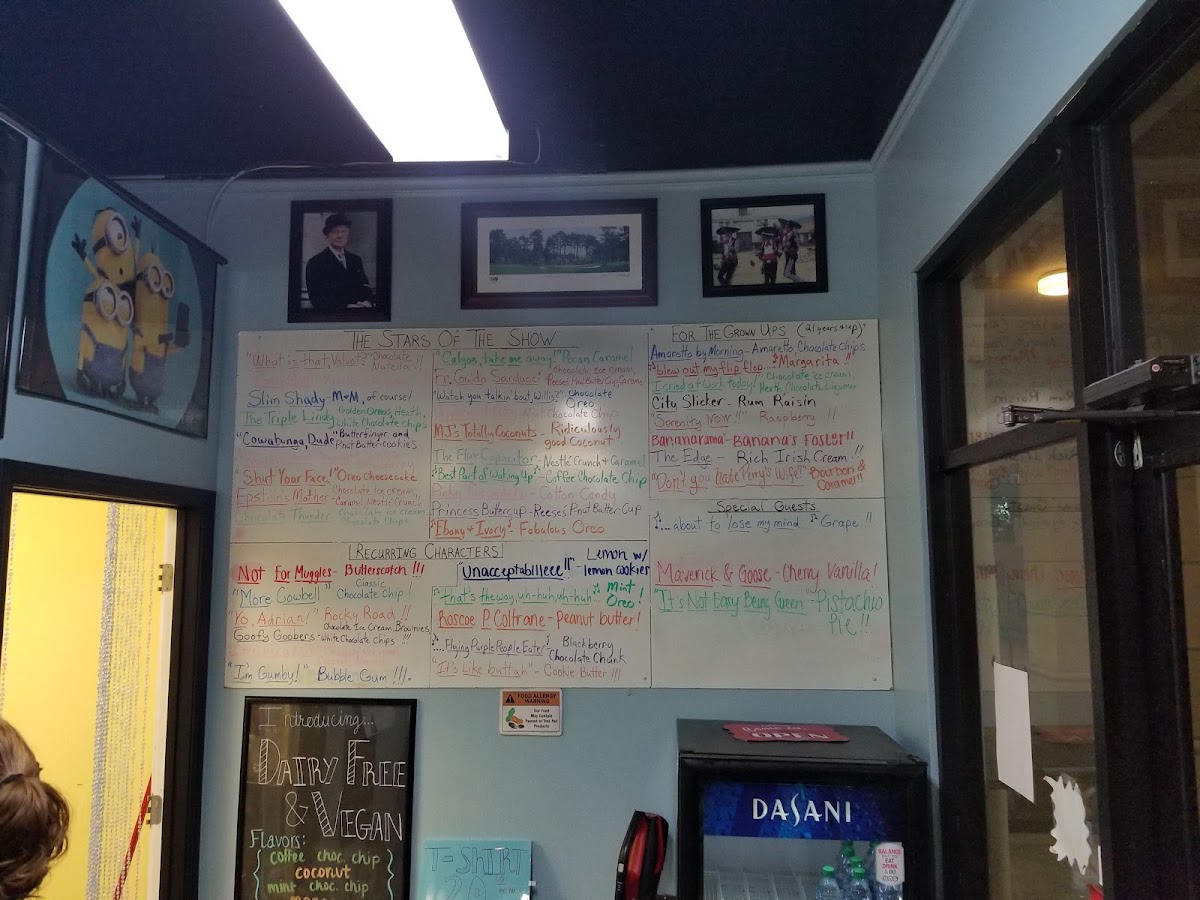 THE STARS OF THE SHOW
"What is that, Velvet?" Chocolate Nutella !!
Slim Shady - M&M, of course!
The Triple Lindy - Golden Oreos, Heath,
White Chocolate Chips
"Cowabunga, Dude" Butterfinger and
Pnut Butter cookies
"Shut Your Face!" Oreo Cheesecake
Epstein's Mother - Chocolate ice cream,
Caramel, Nestle Crunch
Chocolate Thunder - Chocolate ice cream,
Chocolate Chips
"Calgon, take me away!" Pecan Caramel
Fr. Guido Sarducci - Chocolate Ice Cream,
Reese's Pnut Butter Cup, Caramel
"Watch you talkin' bout, Willis?" Chocolate
Oreo
Mint Chocolate Chip
MJ's Totally Coconuts - Ridiculously
good Coconut
The Flux Capacitor - Nestle Crunch & Caramel
"Best Part of Waking Up" - Coffee Chocolate Chip
Cotton Candy
Princess Butercup - Reese's Pnut Butter Cup
"Ebony & Ivory" - Fabulous Oreo
FOR THE GROWN UPS (21 years & up)
Amaretto by Morning - Amaretto Chocolate Chips
"I blew out my flip flop..." "Margarita"
I cried at work today! Chocolate ice cream,
Heath, Chocolate Liqueur
City Slicker - Rum Raisin
"Serenity Now!!" Raspberry !!
Bananarama - Banana's Foster!!
The Edge - Rich Irish Cream!!
"Don't you hate Perry's Wife?" Bourbon &
Caramel"
Special Guests
"...about to lose my mind" Grape !!
Maverick & Goose - Cherry Vanilla!
"It's Not Easy Being Green" - "Pistachio
Pie!!
RECURRING CHARACTERS
Not For Muggles - Butterscotch !!!
"More Cowbell" Classic
Chocolate Chip!
"Yo, Adrian!" Rocky Road!!
Chocolate Ice Cream, Brownies
Goofy Goobers - White Chocolate Chips !!!
"I'm Gumby!" Bubble Gum !!!.
"Unacceptabilleee!!" - Lemon w/
lemon cookies
that's the way, uh-huh, uh-huh... Mint
Oreo!
Roscoe P. Coltrane - Peanut butter!
"....Flying Purple People Eater" Blackberry
Chocolate Chunk
"It's like buttah" - Cookie Butter !!!
FOOD ALLERGY
WARNING
Our Food
May Contain
Peanut or Tree Nut
Products
Introducing...
DAIRY FREE
& VEGAN
Flavors:
coffee choc. chip
coconut
mint choc. chip
T-SHIRT
OPEN
DASANI
BALANCE
EAT
DRINK